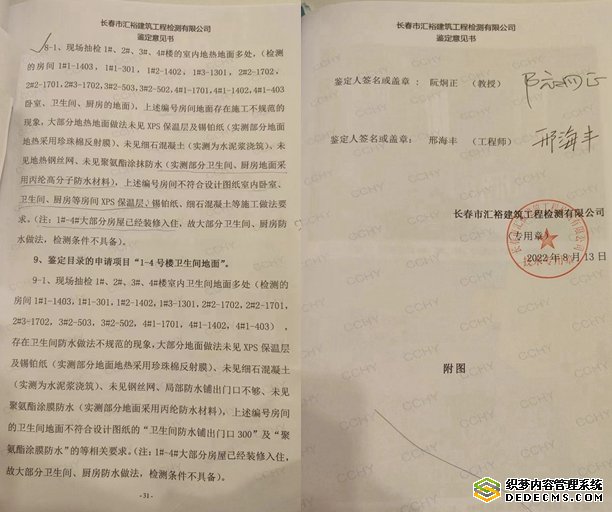 长春市汇裕建筑工程检测有限公司
鉴定意见书
8-1、现场抽检 1#、2#、3#、4#楼的室内地热地面多处，（检测
的房间 1#1-1403，1#1-301，1#2-1402，1#3-1301，2#2-1702，
2#2-1701,2#3-1702,3#2-503,3#2-502,4#1-1701,4#1-1402,4#1-403
卧室、卫生间、厨房的地面）、上述编号房间地面存在施工不规范的
现象，大部分地热地面做法未见 XPS 保温层及锡铂纸（实测部分地面
地热采用珍珠棉反射膜）、未见细石混凝土（实测为水泥浆浇筑）、未
见地热钢丝网、未见聚氨酯涂抹防水（实测部分卫生间、厨房地面采
用丙纶高分子防水材料），上述编号房间不符合设计图纸室内卧室、
卫生间、厨房等房间 XPS 保温层、锡铂纸、细石混凝土等施工做法要
求。（注：1#-4#大部分房屋已经装修入住，故大部分卫生间、厨房防
水做法，检测条件不具备）。
9、鉴定目录的申请项目“1-4 号楼卫生间地面”。
9-1、现场抽检 1#、2#、3#、4#楼室内卫生间地面多处（检测的
房间 1#1-1403，1#1-301，1#2-1402，1#3-1301，2#2-1702，2#2-1701，
2#3-1702，3#2-503，3#2-502，4#1-1701，4#1-1402，4#1-403），
存在卫生间防水做法不规范的现象，大部分地面做法未见 XPS 保温层
及锡铂纸（实测部分地面地热采用珍珠棉反射膜）、未见细石混凝土
（实测为水泥浆浇筑）、未见钢丝网、局部防水铺出门口不够、未见
聚氨酯涂膜防水（实测部分地面采用丙纶防水材料），上述编号房间
的卫生间地面不符合设计图纸的“卫生间防水铺出门口 300”及“聚
氨酯涂膜防水”的等相关要求。（注：1#-4#大部分房屋已经装修入住，
故大部分卫生间、厨房防水做法，检测条件不具备）。
- 31 -
长春市汇裕建筑工程检测有限公司
鉴定意见书
鉴定人签名或盖章：阮炯正 （教授）
鉴定人签名或盖章：邢海丰 （工程师） 邢海丰
长春市汇裕建筑工程检测有限公司
专用章
2022 年 8 月 13 日
附图
CCHY
织梦内容管理系统
DEDECMS.COM